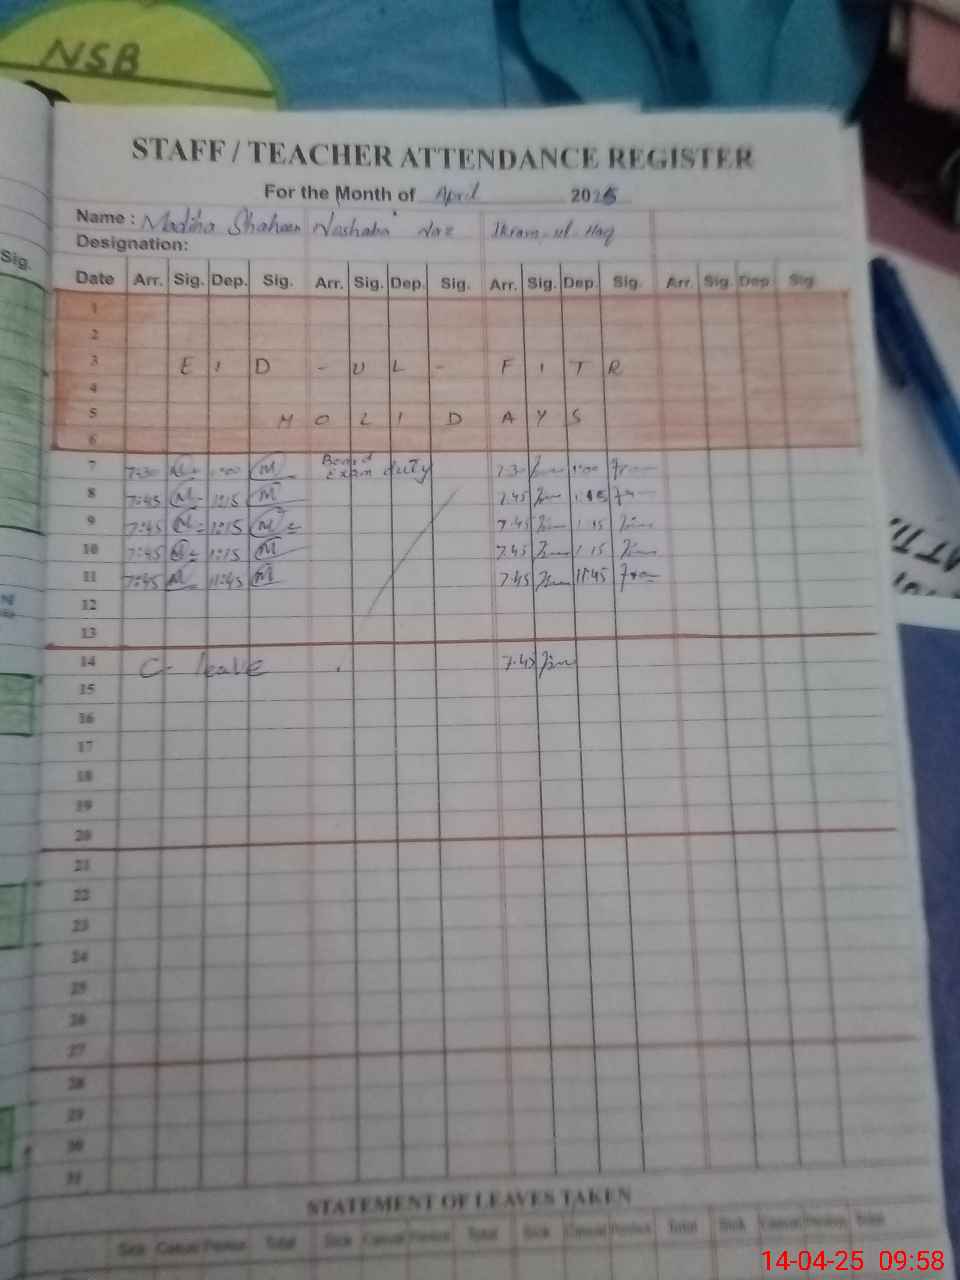 NSB
STAFF / TEACHER ATTENDANCE REGISTER
For the Month of April 2025
Name : Madiha Shaheen Nashaba Naz Ikram-ul-Haq
Designation:
Sig.
Date Arr. Sig. Dep. Sig. Arr. Sig. Dep. Sig. Arr. Sig. Dep. Sig. Arr. Sig. Dep. Sig.
1
2
3 E I D - U L - F I T R
4
5 H O L I D A Y S
6
7 7:30 1:00 Board Exam duty 7.30 1:00
8 7:45 1:15 7.45 1:15
9 7:45 1:15 7.45 1.15
10 7:45 1:15 7.45 1.15
11 7:45 11:45 7.45 11:45
12
13
14 C- leave 7.45
15
16
17
18
19
20
21
22
23
24
25
26
27
28
29
30
31
STATEMENT OF LEAVES TAKEN
Sick Casual Total Sick Casual Total Sick Casual Total Sick Casual Total
14-04-25 09:58